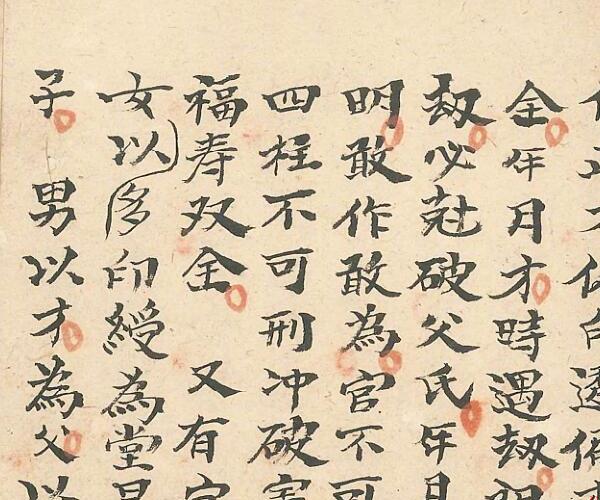 全年月才時遇劫
劫必尅破父氏年月
明敢作敢為官不可
四柱不可刑冲破害
福寿双全 又有官
女以印綬為堂
子 男以才為父以